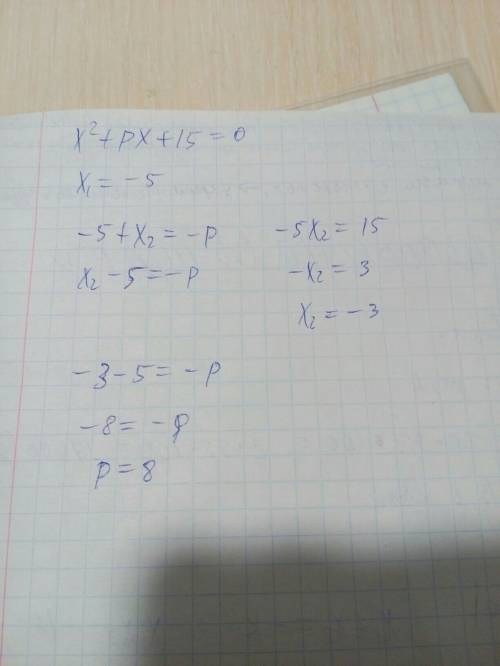 x²+px+15=0
x₁=-5
-5+x₂=-p -5x₂=15
x₂-5=-p -x₂=3
x₂=-3
-3-5=-p
-8=-p
p=8